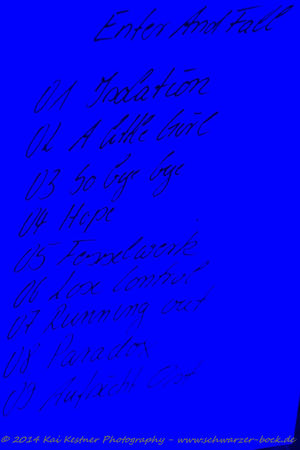 Enter And Fall
01 Isolation
02 A little Girl
03 So bye bye
04 Hope
05 Fesselwerk
06 Lose Control
07 Running out
08 Paradox
09
© 2014 Kai Kestner Photography - www.schwarzer-bock.de